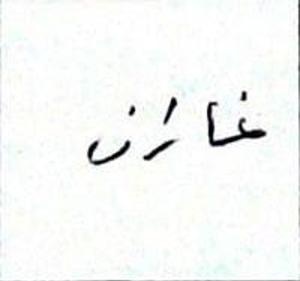 غازان